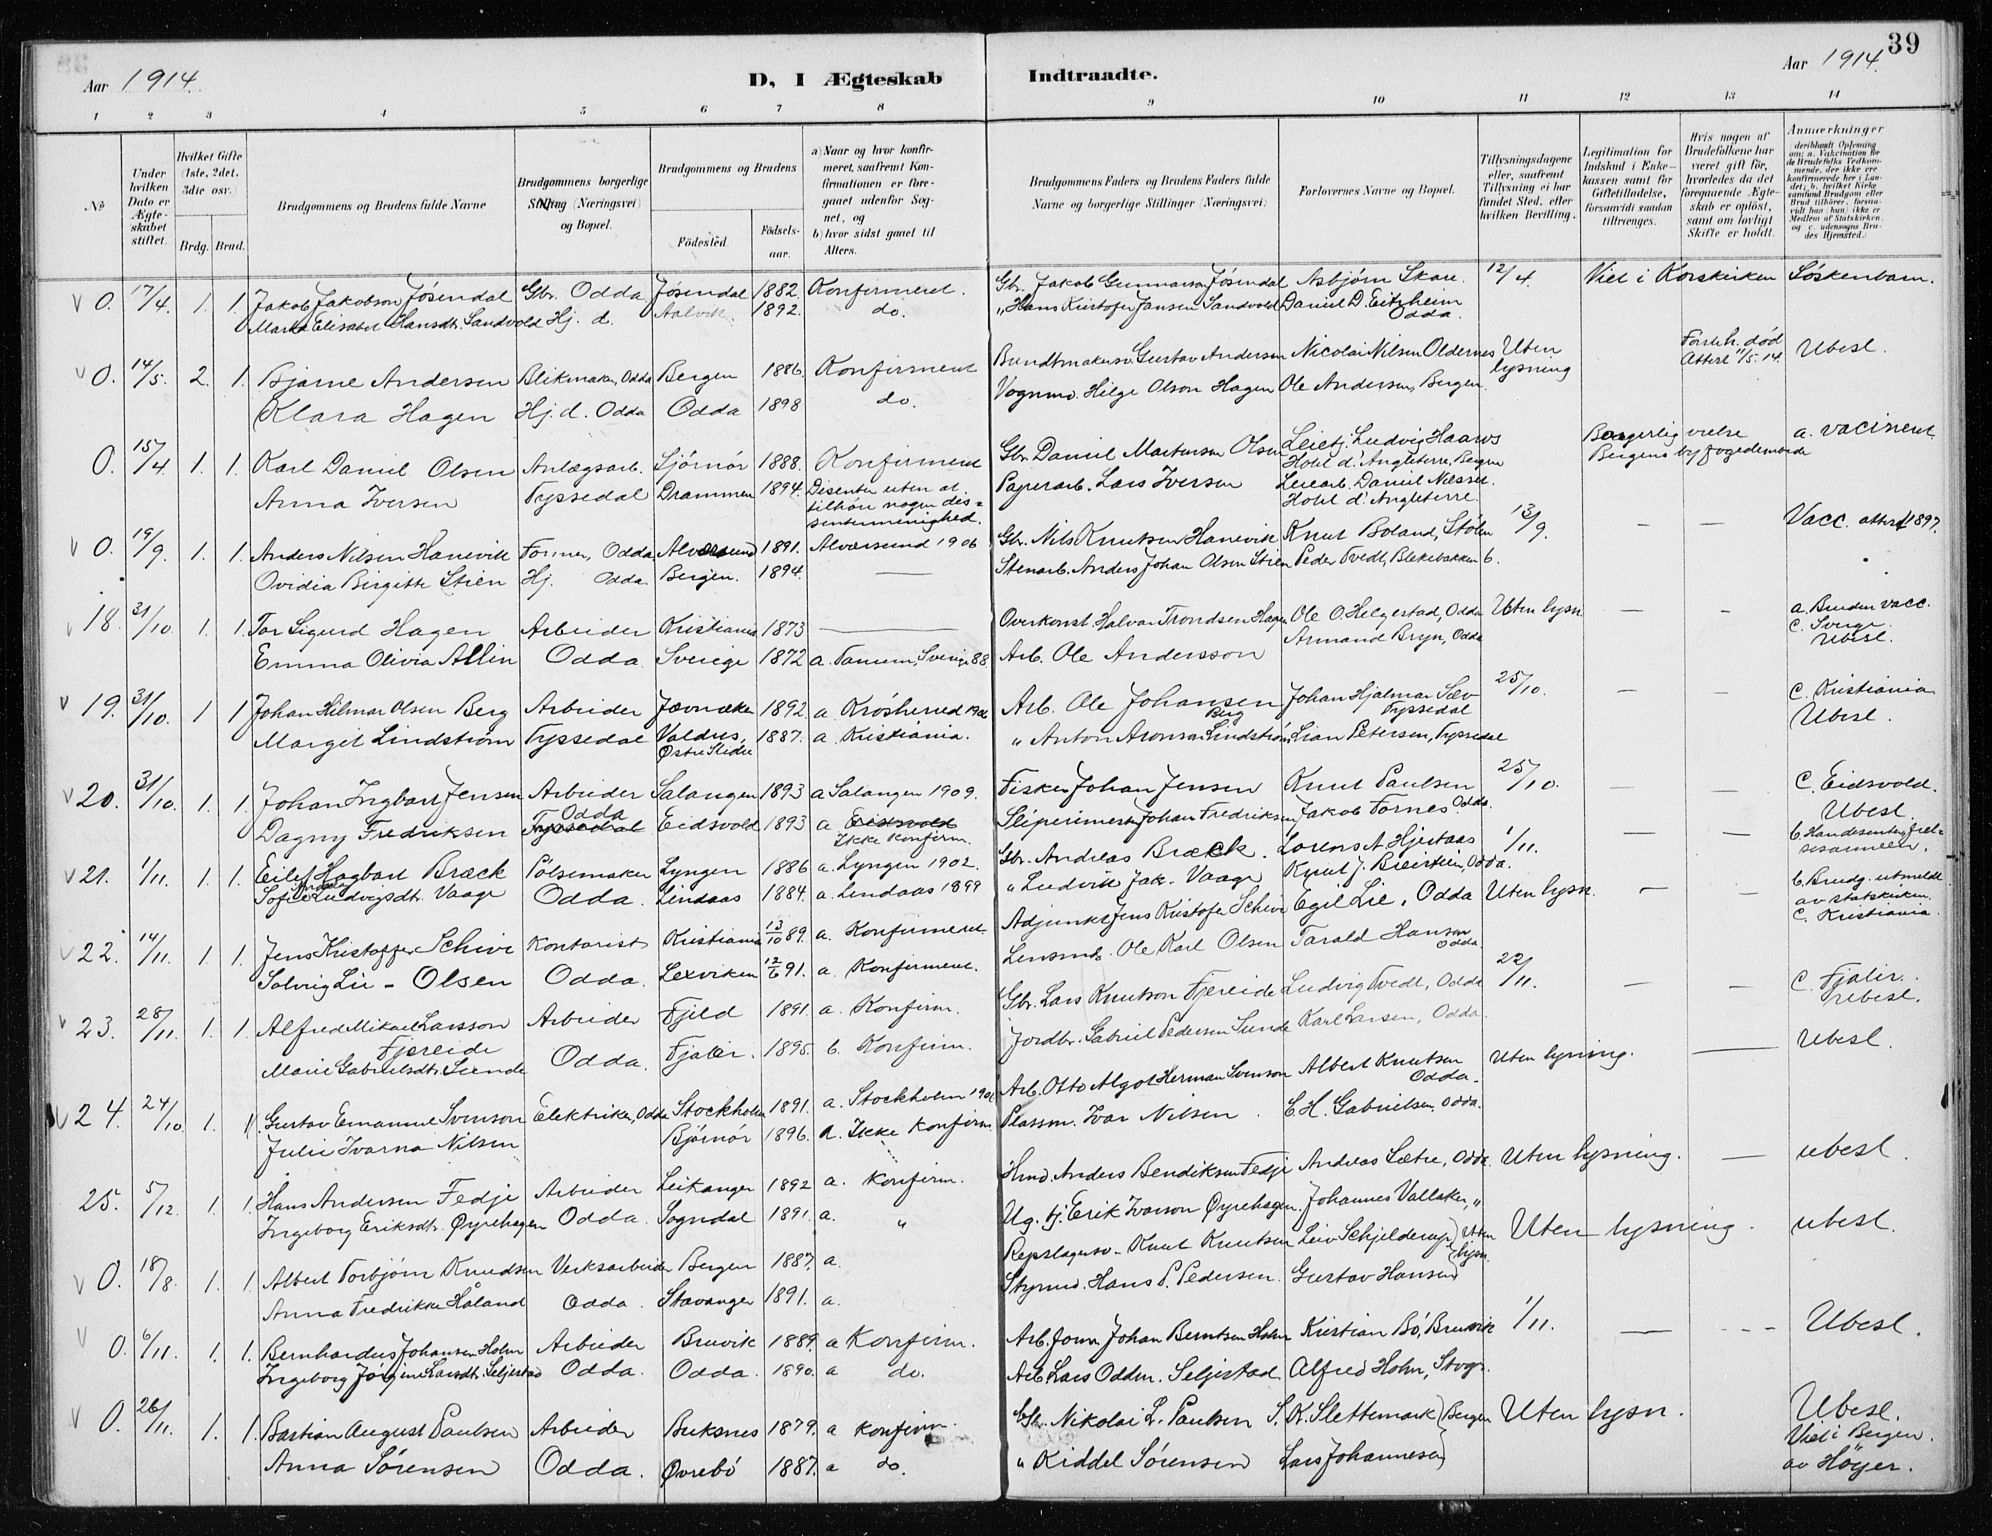 39
Aar 1914.
D, I Ægteskab Indtraadte.
Aar 1914.
1 2 3 4 5 6 7 8 9 10 11 12 13 14
№
Under hvilken Dato er Ægteskabet stiftet.
Hvilket Gifte (1ste, 2det, 3die osv.)
Brdg. Brud.
Brudgommens og Brudens fulde Navne
Brudgommens borgerlige Stilling (Næringsvei) og Bopæl.
Brudgommens og Brudens
Födested. Födsels-aar.
a) Naar og hvor konfirmeret, saafremt Konfirmationen er foregaaet udenfor Sognet, og
b) hvor sidst gaaet til Alters.
Brudgommens Faders og Brudens Faders fulde Navne og borgerlige Stillinger (Næringsvei)
Forlovernes Navne og Bopæl.
Tillysningsdagene eller, saafremt Tillysning ei har fundet Sted, efter hvilken Bevilling.
Legitimation for Indskud i Enkekassen samt for Giftetilladelse, forsaavidt saadan tiltrænges.
Hvis nogen af Brudefolkene har været gift för, hvorledes da det foregaaende Ægteskab er oplöst, samt om lovligt Skifte er holdt.
Anmærkninger
deriblandt Oplysning om: a. Vakcination for de Brudefolks Vedkommende, der ikke ere konfirmerede her i Landet; b. hvilket Kirkesamfund Brudgom eller Brud tilhörer, forsaavidt han (hun) ikke er Medlem af Statskirken, og c. udensogns Brudes Hjemsted.)
0. 17/4. 1. 1. Jakob Jakobson Jøsendal Gbr. Odda Jøsendal 1882. Konfirmeret. Gbr. Jakob Gunnarson Jøsendal Asbjørn Skare. 12/4. Viet i Korskirken Søskenbarn.
Marta Elisabet Hansdt. Sandvold Hj. d. Aalvik. 1892. do. „ Hans Kristofer Jansen Sandvold Daniel D. Eitrheim Odda.
0. 14/5. 2. 1. Bjarne Andersen Blikmaker, Odda Bergen 1886. Konfirmeret Buntmakersv. Gustav Andersen Nicolai Nilsen Oldernes Uten lysning død Attest 11/5. 14. Ubesl.
Klara Hagen Hj. d. Odda Odda 1898 do. Vognmd. Helge Olson Hagen Ole Andersen, Bergen
0. 15/4. 1. 1. Karl Daniel Olsen Anlægsarb. 1888. Konfirmered Gbr. Daniel Martenson Olsen Ludvig Haavs Hotel d'Angleterre, Bergen Borgerlig vielse Bergens byfogedembede a. vacineret
Anna Iversen Tyssedal Drammen 1894. Disenter uten at tilhøre nogen dissentermenighed. Papirarb. Lars Iversen Daniel Nilssen. Hotel d'Angleterre.
0. 19/9. 1. 1. Anders Nilsen Hanevik Former, Odda Alversund 1891. Alversund 1906 Gbr. Nils Knutsen Hanevik Knut Boland, Stølen 13/9. — — Vacc. attest 1897.
Ovidia Bergitte Stien Hj. Odda Bergen. 1894. — Stenarb. Anders Johan Olsen Stien Peder Tvedt, Blekebakken 6.
18. 31/10. 1. 1. Tor Sigurd Hagen Arbeider Kristiania 1873 — Overkonst Halvor Trondsen Hagen Ole O. Helgestad, Odda Uten lysn. — — a. Bruden vacc. c. Sverge. Ubesl.
Emma Olivia Allin Odda Sverige 1872 a. Tanum, Sverige 88 Arb. Ole Andersson Armand Bryn, Odda
19. 31/10. 1 1 Johan Hilmar Olsen Berg Arbeider Jevnaker 1892 a. Krødsherred 1906 Arb. Ole Johansen Berg Johan Hjalmar Sæv Tyssedal 25/10. — — c. Kristiania Ubesl.
Margit Lindstrøm Tyssedal Valdres, Østre Slidre 1887. a. Kristiania. „ Anton Aronsen Lindstrøm Petersen, Tyssedal
20. 31/10. 1. 1. Johan Ingbart Jensen Arbeider Salangen 1893 a Salangen 1909. Fisker Johan Jensen Knut Paulsen 25/10. — — c. Eidsvold. Ubesl.
Dagny Fredriksen Tyssedal Odda Eidsvold 1893 a Eidsvold Ikke konfirm. Sliperimester Johan Fredriksen Jakob Fornes Odda.
21. 1/11. 1. 1. Eilef Hagbart Bræck Pølsemaker Lyngen 1886 a. Lyngen 1902. Gbr. Andreas Bræck. Lorens A Hjertaas 1/11. — — b. Frelsesarmeen.
Sofie Ludvigsdt. Vaage Odda. Lindaas 1884. a. Lindaas 1899 „ Ludvik Jak. Vaage Knut J. Odda.
22. 14/11. 1. 1. Jens Kristoffer Schive Kontorist Kristiania 13/10 89. a. Konfirmeret Adjunkt Jens Kristofer Schive Egil Lie, Odda Uten lysn. — — b. Brudg. utmeldt av statskirken. c. Kristiania.
Solveig Lie - Olsen Odda. Lexviken 12/6 91. a. Konfirmeret. Lensmd. Ole Karl Olsen Tarald Hansen Odda.
23. 28/11. 1. 1. Alfred Mikael Larsson Fjereide Arbeider Fjeld 1891. a. Konfirm. Gbr. Lars Knutson Fjereide Ludvig Tvedt, Odda 22/11. — — c. Fjaler. ubesl.
Marie Gabrielsdt. Sunde Odda. Fjaler. 1895. b. Konfirm. Jordbr. Gabriel Pedersen Sunde Karl Larsen, Odda. Ubesl.
24. 24/10. 1. 1. Gustav Emanuel Svenson Elektriker, Odda Stockholm 1891. a. Stockholm Arb. Otto Algot Herman Svenson Albert Knutsen Odda. Uten lysning. —
Julie Ivarna Nilsen Bjørnør 1896. a. Ikke konfirm. Plassm. Ivar Nilsen. C. H. Gabrielsen, Odda.
25. 5/12. 1. 1. Hans Andersen Fedje Arbeider Leikanger 1892 a. konfirm. Hmd. Anders Bendiksen Fedje Andreas Sætre, Odda. Uten lysning. — ubesl.
Ingeborg Eriksdt. Øyrehagen Odda. Sogndal 1891. a. „ Ug. tj. Erik Ivarson Øyrehagen. Johannes Vallaker, „
0. 18/8. 1. 1. Albert Torbjørn Knudsen Verksarbeider Bergen 1887. a. Repslagersv. Knut Knutsen Leiv Schjelderup Uten lysn. Uten lysning. ubesl.
Anna Fredrikke Håland Odda. Stavanger 1891. a. Styrmd. Hans P. Pedersen. Gustav Hansen
0. 6/11. 1. 1. Bernhardus Johansen Holm Arbeider Bruvik 1889. a Konfirm. Arb. form. Johan Berntsen Holm Kristian Bø, Bruvik 1/11. — - - Ubesl.
Ingeborg Jørgine Larsdt. Seljestad Odda. Odda. 1890. a do. Arb. Lars Odden. Seljestad Alfred Holm,
0. 26/11. 1. 1. Bastian August Paulsen Arbeider Buksnes 1879. a konfirm. Gbr. Nikolai L. Paulsen S. K. Slettemark Bergen Uten lysn. Ubesl. Viet i Bergen. av Høyer.
Anna Sørensen Odda. Øvrebø 1887. a do. „ Kiddel Sørensen Lars Johannesen